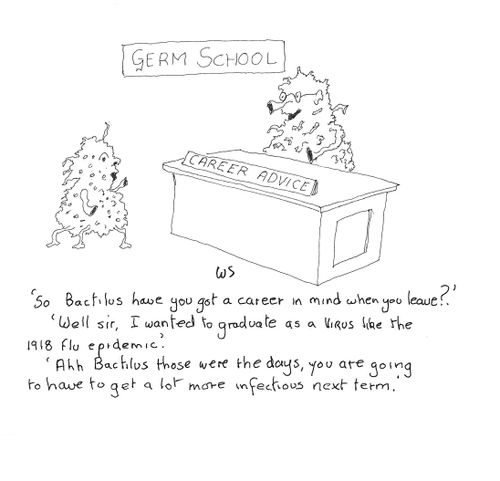 GERM SCHOOL
CAREER ADVICE
WS
'So Bactilus have you got a career in mind when you leave?.'
'Well sir, I wanted to graduate as a VIRUS like the
1918 flu epidemic.'
'Ahh Bactilus those were the days, you are going
to have to get a lot more infectious next term.'